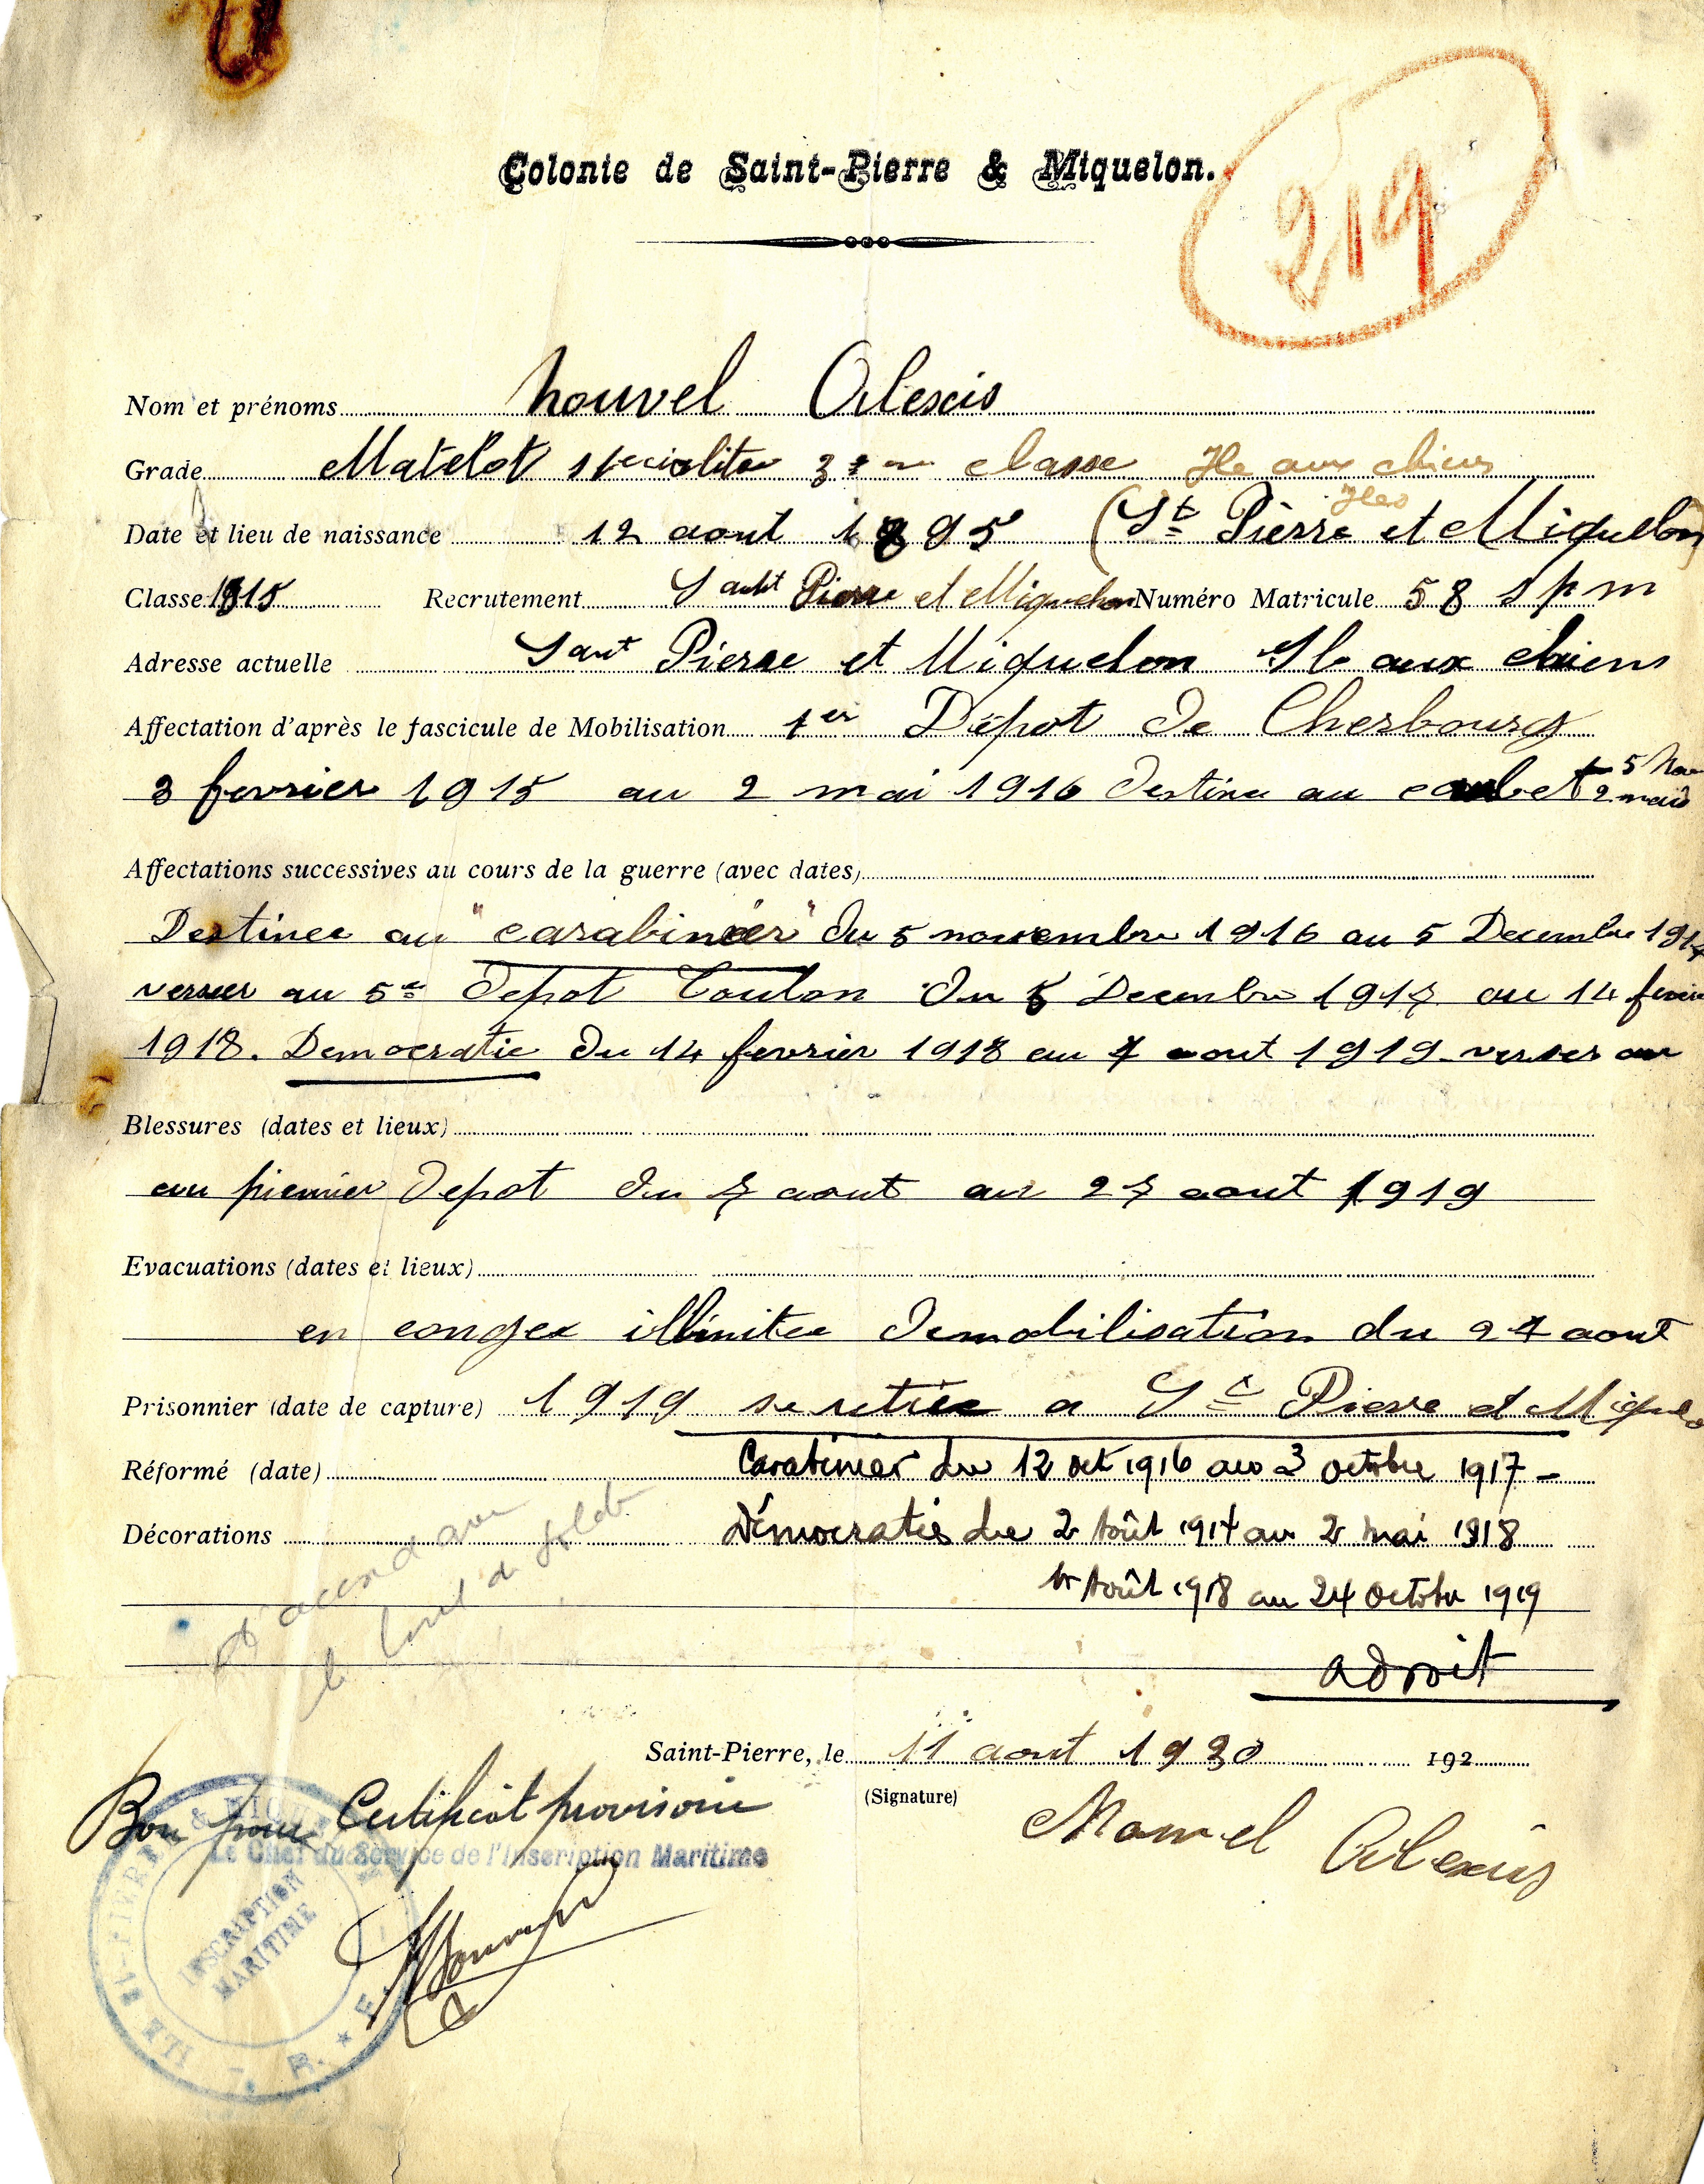 Colonie de Saint-Pierre & Miquelon.
219
Nom et prénoms Nouvel Alexis
Grade Matelot specialite 3eme classe Ile aux chiens
Iles
Date et lieu de naissance 12 aout 1895 (St Pierre et Miquelon)
Classe 1915 Recrutement Saint Pierre et Miquelon Numéro Matricule 58 spm
Adresse actuelle Saint Pierre et Miquelon Ile aux chiens
Affectation d'après le fascicule de Mobilisation 1er Dépot de Cherbourg
3 fevrier 1915 au 2 mai 1916 Destinee au 5 Nov
2 mai
Affectations successives au cours de la guerre (avec dates)
Destinee au "carabinier" du 5 novembre 1916 au 5 Decembre 1917
verser au 5e depot Toulon du 5 Decembre 1917 au 14 fevrier
1918. Democratie du 14 fevrier 1918 au 7 aout 1919 verser au
Blessures (dates et lieux)
au premier depot du 7 aout au 27 aout 1919
Evacuations (dates et lieux)
en congee illimitee demobilisation du 27 aout
Prisonnier (date de capture) 1919 se retire a St Pierre et Miquelo
Réformé (date) Carabinier du 12 oct 1916 au 3 octobre 1917 -
Décorations Démocratie du 2 Août 1917 au 2 Mai 1918
1er Août 1918 au 24 Octobre 1919
D'accord avec
le livret de solde
adroit
Saint-Pierre, le 11 aout 1930 192
(Signature)
Bon pour Certificat provisoire
Nouvel Alexis
Le Chef du Service de l'Inscription Maritime
INSCRIPTION
MARITIME